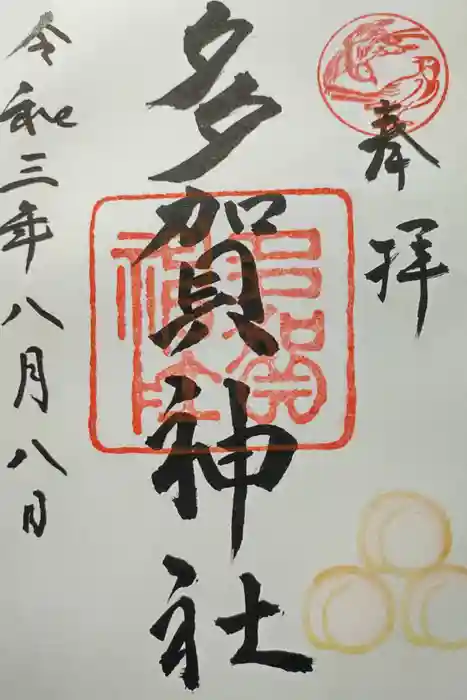 奉拝
多賀神社
令和三年八月八日